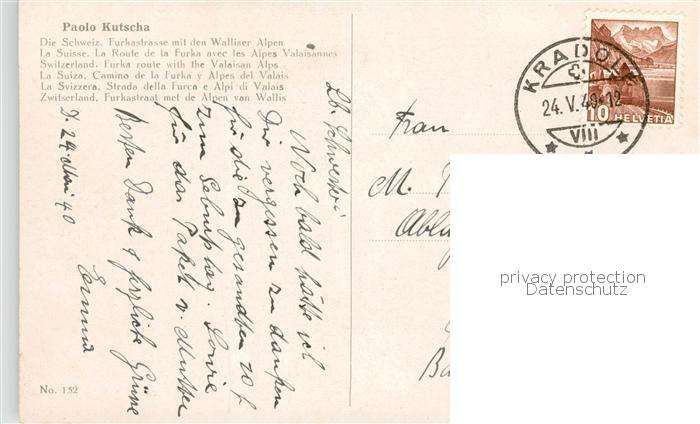 Paolo Kutscha
Die Schweiz. Furkastrasse mit den Walliser Alpen
La Suisse. La Route de la Furka avec les Alpes Valaisannes
Switzerland. Furka route with the Valaisan Alps
La Suiza. Camino de la Furka y Alpes del Valais
La Svizzera. Strada della Furca e Alpi di Valais
Zwitserland. Furkastraat met de Alpen van Wallis
D. 24 Mai 40
Lb. Schwester!
Noch bald hätte ich
Dir vergessen zu danken
für die zugesandten 20 f
zum Geburtstag. Sowie
für das Paket v. Mutter
Besten Dank & herzliche Grüsse
No. 152
KRADOLF
24. V. 40-12
VIII
10 HELVETIA
Frau
M.
privacy protection
Datenschutz